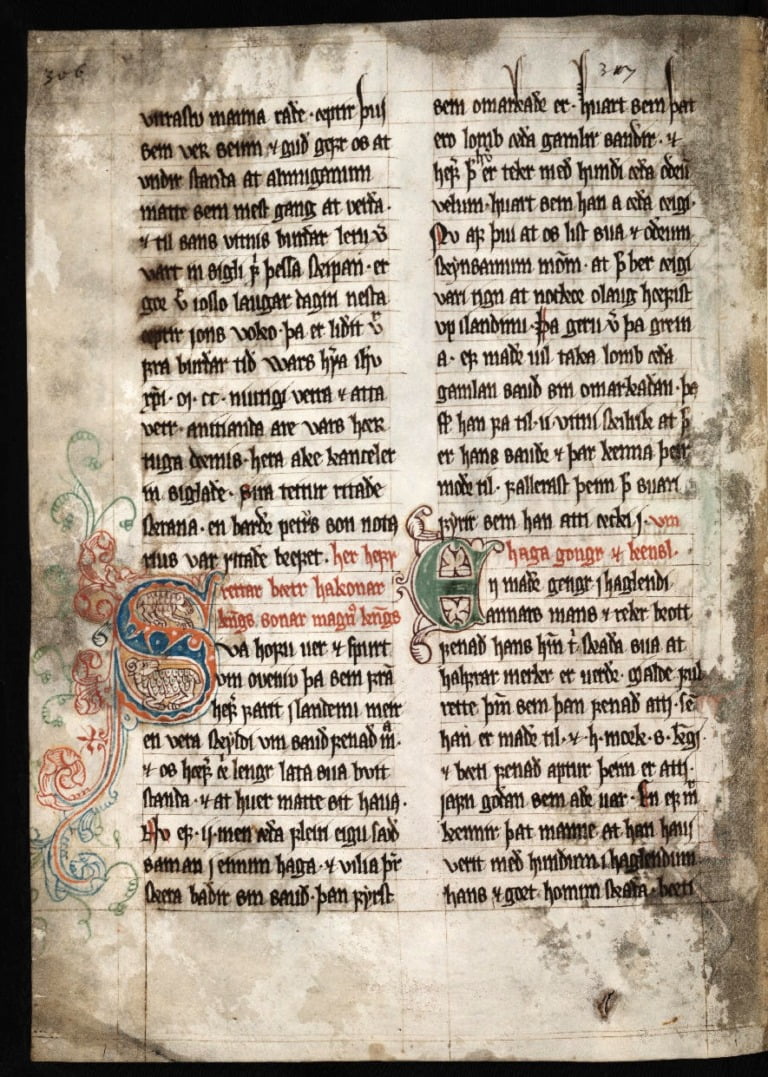 306
vitrastu manna rade · eptir þui
sem ver seim ⁊ gud gefr os at
vndir standa at almuganum
matte sem mest gang at verda ·
⁊ til sans vitnis burdar letu v̄
vart in sigli f̄ þessa skipan · er
gor v̄ i oslo laugar dagin nesta
eptir jons voko · þa er lidit v̄
fra burdar tid vars h̄ra ihu
xp̄i · cc · niutigi vetra ⁊ atta
vetr · annanda are vars
tuga doms · herra ake kanceler
in siglade · ritade
skrana · en barde petrs son nota
rius var ritade breeft · her hefr
rettar bøtr hakonar
kngs sonar magnus kngs
Sva hofu ver ⁊ spurt
vm ovenio þa sem fra
hefr farit j landeno meir
en vera skyldi vm saud fenad m̄ ·
⁊ os hefr lengr lata sua buit
standa · ⁊ at huer matte sit hava ·
Nv ef · ij · men eda flein eigu saud
saman j einum haga · ⁊ vilia þr
skera badir sin saud · þan fyrst
307
sem omarkade er · huart sem þat
ero lomb eda gamlir saudir · ⁊
hefr þ er tekr med hundi eda odru
velum · huart sem han a eda eigi ·
Nv af þui at os list sua ⁊ odrum
skynsamum mom · at þ ber eigi
vari tign at nockor olaug hefist
vp islandinu · Þa geru v̄ þa grein
a · ef madr uil taka lomb eda
gamlan saud sin omarkadan · þa
han fa til · ii · vitni skilrik at þ
er hans saudr ⁊ þar kenna þeir
modr til · fallerast þeim þ suari
fyrir sem han atti ecki j · vm
haga gongr ⁊ kensl ·
En madr gengr j haglendi
annars mans ⁊ rekr brott
fenad hans h̄m t skada sua at
halfrar merkr er uerdr · gialde ful
rette þm sem þan fenad atti · se
han er madr til · ⁊ · h · mork · s · kgi
⁊ beti fenad aptur þeim er atti ·
jafn godan sem adr uar · En ef m̄
kennir þat manne at han hafi
verit med hundum i haglendum
hans ⁊ gort honum skada · beti